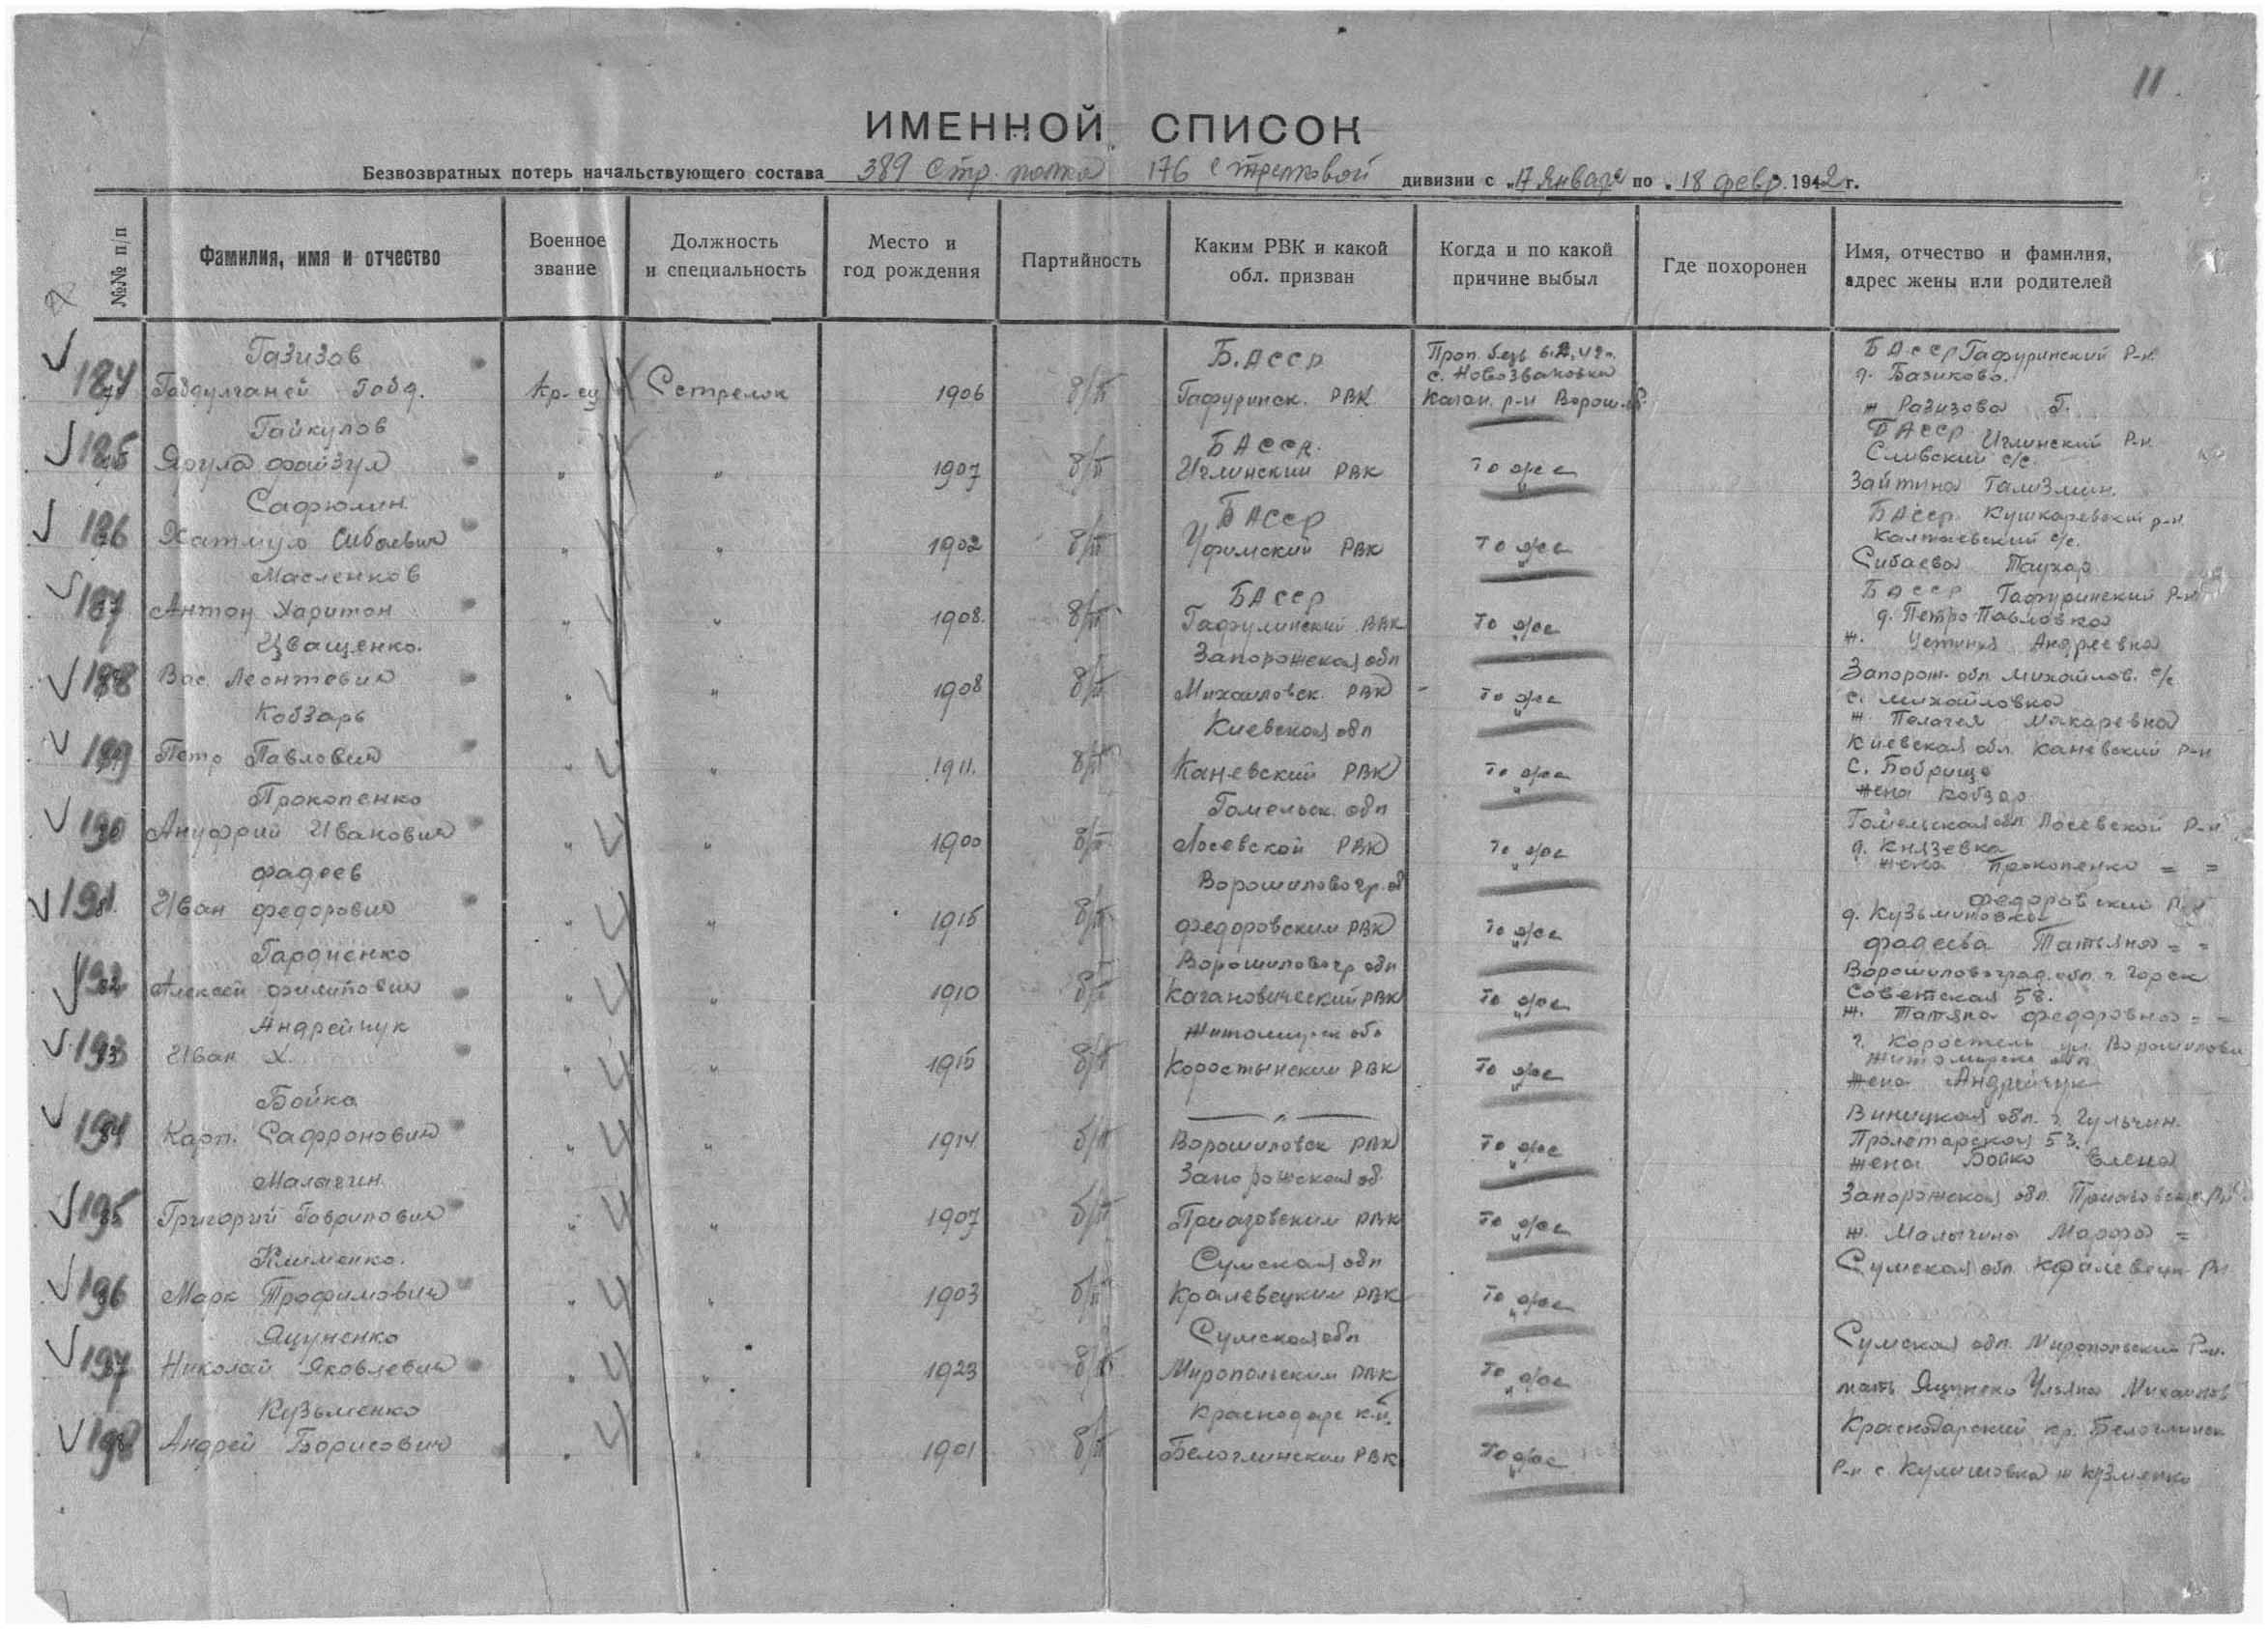 11
ИМЕННОЙ СПИСОК
Безвозвратных потерь начальствующего состава 389 Стр. полка 176 стрелковой дивизии с „17 января по „18 февр. 1942 г.
№№ п/п
Фамилия, имя и отчество
Военное звание
Должность и специальность
Место и год рождения
Партийность
Каким РВК и какой обл. призван
Когда и по какой причине выбыл
Где похоронен
Имя, отчество и фамилия, адрес жены или родителей
184 Газизов
Габдулганей Габд. Кр-ец Стрелок 1906 б/п
Б.АССР
Гафуринск. РВК
Проп. безв 6.2.42г.
с. Новозвановка
Каган. р-н Ворош.
БАССР Гафуринский р-н.
д. Базиково.
185 Гайкулов
Ярула Файзул „ „ 1907 б/п
БАССР.
Иглинский РВК
то же
БАССР Иглинский р-н
с/с.
186 Сафюлин
Сибаевич „ „ 1902 б/п
БАССР
Уфимский РВК
то же
БАССР. Кушкаревский р-н.
с/с.
Сибаева
187 Масленков
Антон Харитон „ „ 1908. б/п
БАССР
Гафулинский РВК
то же
БАССР Гафуринский р-н
д. Петро-Павловка
ж. Устинья Андреевна
188 Иващенко.
Вас. Леонтевич „ „ 1908 б/п
Запорожская обл
Михаиловск. РВК
то же
Запорож. обл. Михайлов. с/с
с. Михайловка
ж Полагея Макаревна
189 Кобзарь
Петр Павлович „ „ 1911. б/п
Киевская обл
Каневский РВК
то же
Киевская обл. Каневский р-н
с. Бобрище
жена Кобзар
190 Прокопенко
Ануфрий Иванович „ „ 1900 б/п
Гомельск. обл
Лоевской РВК
то же
Гомельская обл Лоевской р-н
д. Князевка
жена Прокопенко = =
191 Фадеев
Иван Федорович „ „ 1915 б/п
Ворошиловогр. об
Федоровским РВК
то же
Федоровский р-н
д. Кузьминовка
Фадеева Татьяна = =
192 Гардиенко
Алексей Филипович „ „ 1910 б/п
Ворошиловогр обл
Кагановический РВК
то же
Ворошиловоград. обл. г. Горск
Советская 58.
ж. Татяна Федоровна = =
193 Андрейчук
Иван Х. „ „ 1915 б/п
Житомирск обл
Коростынским РВК
то же
г. Коростень ул. Ворошилова
Житомирск обл
жена Андрейчук
194 Бойко
Карп. Сафронович „ „ 1914 б/п
— „ —
Ворошиловск РВК
то же
Виницкая обл. г. Тульчин.
Пролетарская 53.
жена Бойко Елена
195 Малыгин
Григорий Гаврилович „ „ 1907 б/п
Запорожская об.
Приазовским РВК
то же
Запорожская обл. Приазовский р-н
ж. Малыгина Марфа =
196 Клименко.
Марк Трофимович „ „ 1903 б/п
Сумская обл
Кралевецким РВК
то же
Сумская обл. Кралевецк р-н
197 Яцуненко
Николай Яковлевич „ „ 1923 б/п
Сумская обл
Миропольским РВК
то же
Сумская обл. Миропольский р-н.
мать Яцунеко Ульяна Михаилов
198 Кузьменко
Андрей Борисович „ „ 1901 б/п
Краснодарс к.й.
Белоглинским РВК
то же
Краснодарский кр. Белоглинск
р-н с. Кулишовка ж Кузменко